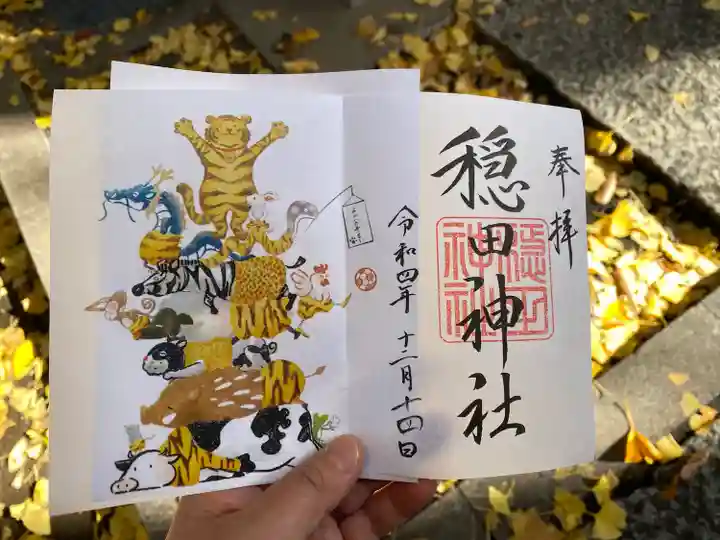 奉拝
穏田神社
穏田神社
令和四年 十二月十四日